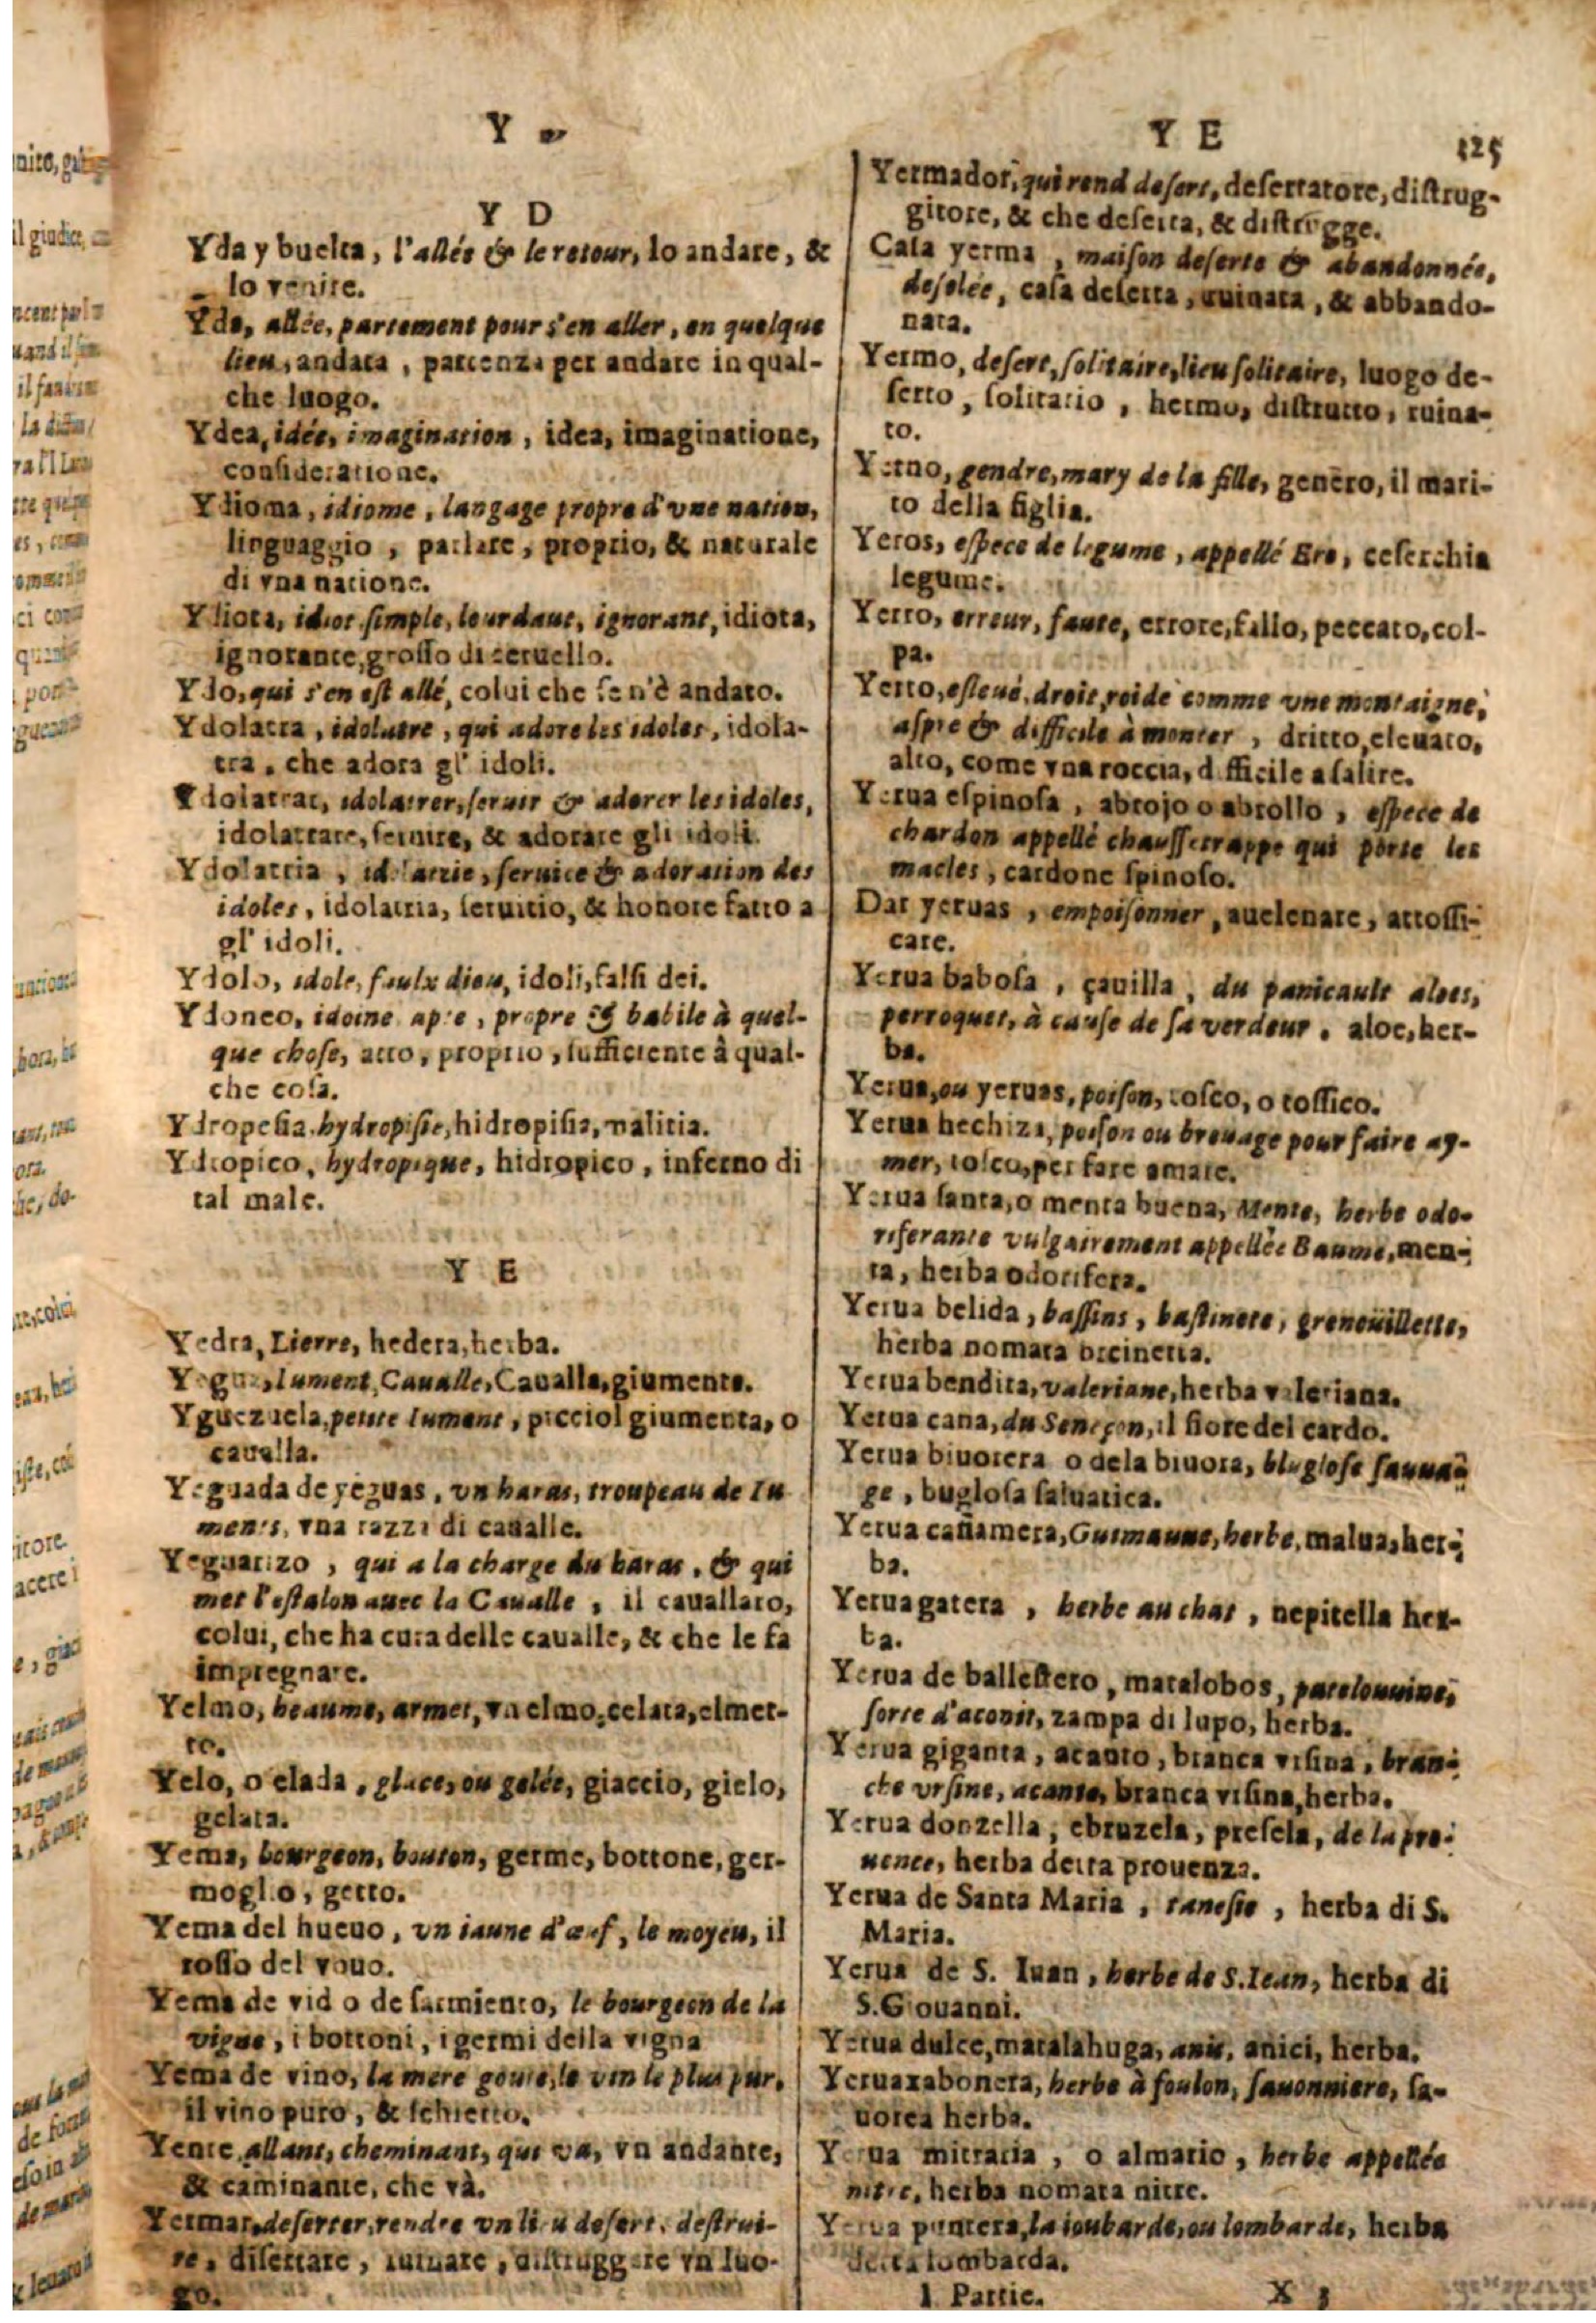 Y
Y D
Yda y buelta, l'allée & le retour, lo andare, &
lo venire.
Yda, allée, partement pour s'en aller, en quelque
lieu, andata, partenza per andare in qual-
che luogo.
Ydea, idée, imagination, idea, imaginatione,
consideratione.
Ydioma, idiome, langage propre d'vne nation,
linguaggio, parlare, proprio, & naturale
di vna natione.
Ydiota, idiot simple, lourdaut, ignorant, idiota,
ignorante, grosso di ceruello.
Ydo, qui s'en est allé, colui che se n'è andato.
Ydolatra, idolatre, qui adore les idoles, idola-
tra, che adora gl' idoli.
Ydolatrar, idolatrer, seruir & adorer les idoles,
idolatrare, seruire, & adorare gli idoli.
Ydolatria, idolatrie, seruice & adoration des
idoles, idolatria, seruitio, & honore fatto a
gl' idoli.
Ydolo, idole, faulx dieu, idoli, falsi dei.
Ydoneo, idoine apte, propre & habile à quel-
que chose, atto, proprio, sufficiente à qual-
che cosa.
Ydropesia, hydropisie, hidropisia, malitia.
Ydropico, hydropique, hidropico, infermo di
tal male.
Y E
Yedra, Lierre, hedera, herba.
Yegua, Iument, Caualle, Caualla, giumenta.
Yguezuela, petite Iument, picciol giumenta, o
caualla.
Yeguada de yeguas, vn haras, troupeau de Iu
mens, vna razza di caualle.
Yeguarizo, qui a la charge du haras, & qui
met l'estalon auec la Caualle, il cauallaro,
colui, che ha cura delle caualle, & che le fa
impregnare.
Yelmo, heaume, armet, vn elmo, celata, elmet-
to.
Yelo, o elada, glace, ou gelée, giaccio, gielo,
gelata.
Yema, bourgeon, bouton, germe, bottone, ger-
moglio, getto.
Yema del hueuo, vn iaune d'œuf, le moyeu, il
rosso del vouo.
Yema de vid o de sarmiento, le bourgeon de la
vigne, i bottoni, i germi della vigna
Yema de vino, la mere goute, le vin le plus pur,
il vino puro, & schietto.
Yente, allant, cheminant, qui va, vn andante,
& caminante, che và.
Yermar, deserter, rendre vn lieu desert, destrui-
re, disertare, ruinare, distruggere vn luo-
go.
Y E
125
Yermador, qui rend desert, desertatore, distrug-
gitore, & che deserta, & distrugge.
Casa yerma, maison deserte & abandonnée,
desolée, casa deserta, ruinata, & abbando-
nata.
Yermo, desert, solitaire, lieu solitaire, luogo de-
serto, solitario, hermo, distrutto, ruina-
to.
Yerno, gendre, mary de la fille, genero, il mari-
to della figlia.
Yeros, espece de legume, appellé Ers, ceserchia
legume.
Yerro, erreur, faute, errore, fallo, peccato, col-
pa.
Yerto, esleué, droit, roide comme vne montaigne,
aspre & difficile à monter, dritto, eleuato,
alto, come vna roccia, difficile a salire.
Yerua espinosa, abrojo o abrollo, espece de
chardon appellé chaussetrappe qui porte les
macles, cardone spinoso.
Dar yeruas, empoisonner, auelenare, attossi-
care.
Yerua babosa, çauilla, du panicault aloes,
perroquet, à cause de sa verdeur. aloe, her-
ba.
Yerua, ou yeruas, poison, tosco, o tossico.
Yerua hechiza, poison ou breuage pour faire ay-
mer, tosco, per fare amare.
Yerua santa, o menta buena, Mente, herbe odo-
riferante vulgairement appellée Baume, men-
ta, herba odorifera.
Yerua belida, bassins, bastinets, grenouillette,
herba nomata orcinetta.
Yerua bendita, valeriane, herba valeriana.
Yerua cana, du Seneçon, il fiore del cardo.
Yerua biuorera o dela biuora, bluglose sauua-
ge, buglosa saluatica.
Yerua cañamera, Guimauue, herbe, malua, her-
ba.
Yerua gatera, herbe au chat, nepitella her-
ba.
Yerua de ballestero, matalobos, patelouuine,
sorte d'aconit, zampa di lupo, herba.
Yerua giganta, acanto, branca vrsina, bran-
che vrsine, acante, branca vrsina, herba.
Yerua donzella, ebruzela, presela, de la pro-
uence, herba detta prouenza.
Yerua de Santa Maria, tanesie, herba di S.
Maria.
Yerua de S. Iuan, herbe de S. Iean, herba di
S. Giouanni.
Yerua dulce, matalahuga, anis, anici, herba.
Yeruaxabonera, herbe à foulon, sauonniere, sa-
uorea herba.
Yerua mitraria, o almario, herbe appellée
nitre, herba nomata nitre.
Yerua puntera, la ioubarde, ou lombarde, herba
detta lombarda.
I Partie.
X 3